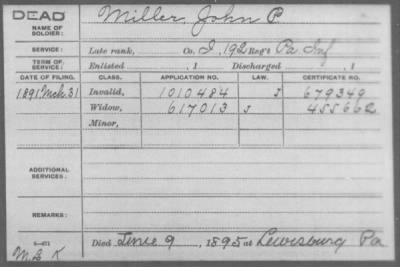 DEAD Miller, John P
NAME OF SOLDIER:
SERVICE: Late rank, Co. I, 192 Reg't Pa Inf
TERM OF SERVICE: Enlisted , 1 Discharged , 1
DATE OF FILING. CLASS. APPLICATION NO. LAW. CERTIFICATE NO.
1891 Mch 31 Invalid, 1010484 J 679349
Widow, 617013 J 455662
Minor,
ADDITIONAL SERVICES:
REMARKS:
Died June 9, 1895 at Lewisburg Pa